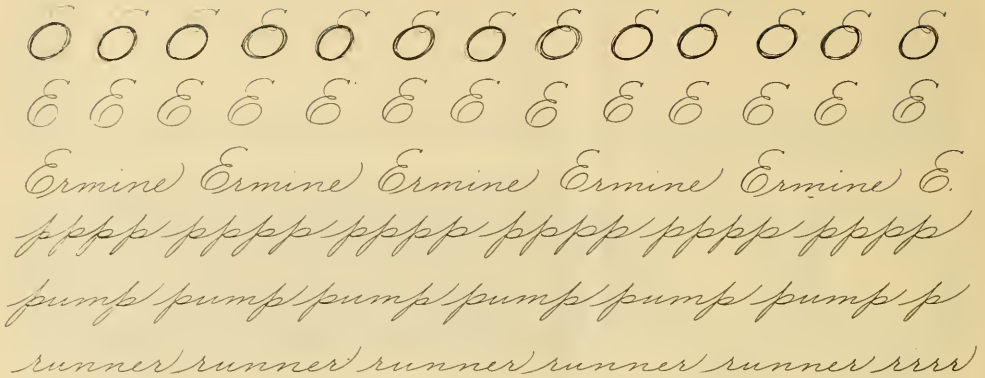 E E E E E E E E E E E E E
E E E E E E E E E E E E E
Ermine Ermine Ermine Ermine Ermine E.
pppp pppp pppp pppp pppp pppp
pump pump pump pump pump pump p
runner runner runner runner runner rrrr